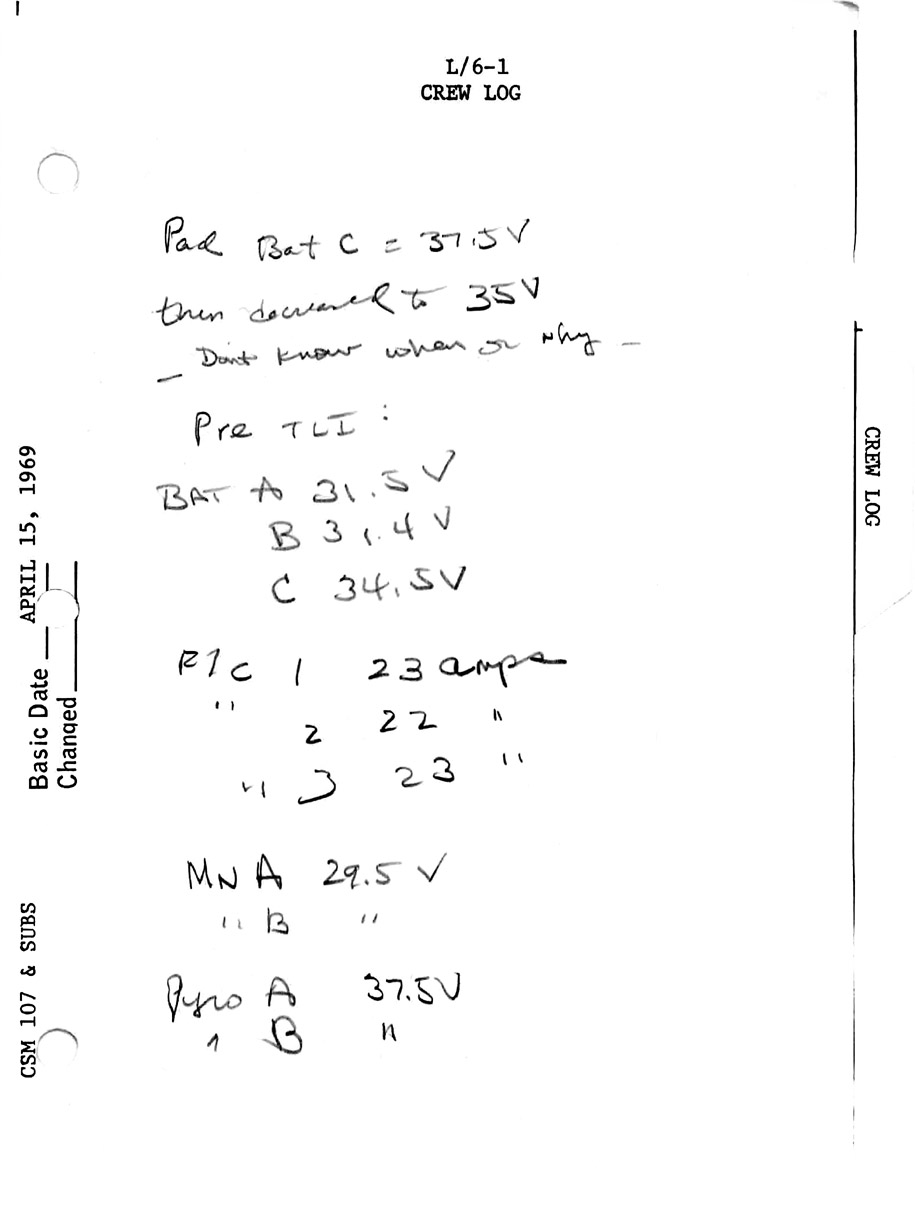 L/6-1
CREW LOG
Pad Bat C = 37.5V
then decreased to 35V
— Dont know when or why —
Pre TLI :
BAT A 31.5 V
B 31.4 V
C 34.5V
F/C 1 23 amps
" 2 22 "
" 3 23 "
MN A 29.5 V
" B "
Pyro A 37.5V
" B "
CREW LOG
Basic Date APRIL 15, 1969
Changed
CSM 107 & SUBS